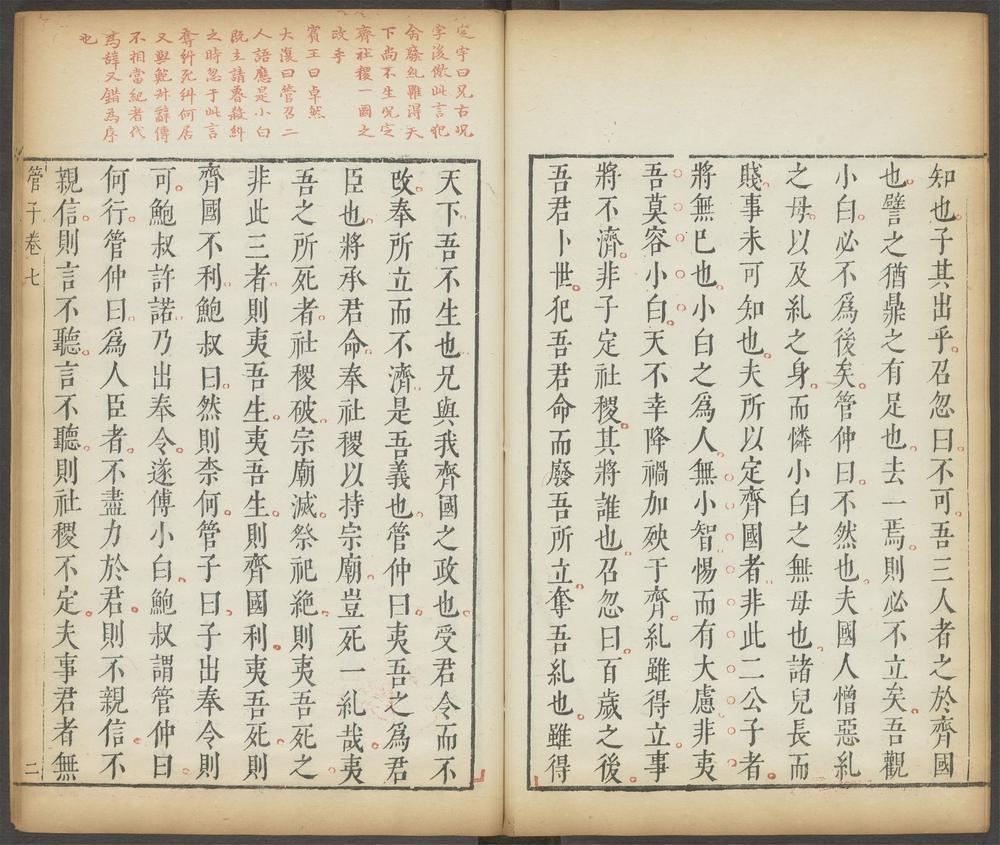 知也子其出乎召忽曰不可吾三人者之於齊國
也譬之猶鼎之有足也去一焉則必不立矣吾觀
小白必不爲後矣管仲曰不然也夫國人憎惡糺
之母以及糺之身而憐小白之無母也諸兒長而
賤事未可知也夫所以定齊國者非此二公子者
將無巳也小白之爲人無小智惕而有大慮非夷
吾莫容小白天不幸降禍加殃于齊糺雖得立事
將不濟非子定社稷其將誰也召忽曰百歲之後
吾君卜世犯吾君命而廢吾所立奪吾糺也雖得
定宇曰兄古况
字後倣此言犯
命廢糺雖得天
下尚不生况定
齊社稷一國之
政乎
賓王曰卓然
大復曰管召二
人語應是小白
既主請魯殺糾
之時忽于此言
奪糾死糾何居
又與鮑叔辭傅
不相當紀者代
爲辭又錯爲序
也
天下吾不生也兄與我齊國之政也受君令而不
改奉所立而不濟是吾義也管仲曰夷吾之爲君
臣也將承君命奉社稷以持宗廟豈死一糺哉夷
吾之所死者社稷破宗廟滅祭祀絶則夷吾死之
非此三者則夷吾生夷吾生則齊國利夷吾死則
齊國不利鮑叔曰然則柰何管子曰子出奉令則
可鮑叔許諾乃出奉令遂傅小白鮑叔謂管仲曰
何行管仲曰爲人臣者不盡力於君則不親信不
親信則言不聽言不聽則社稷不定夫事君者無
管子卷七 二